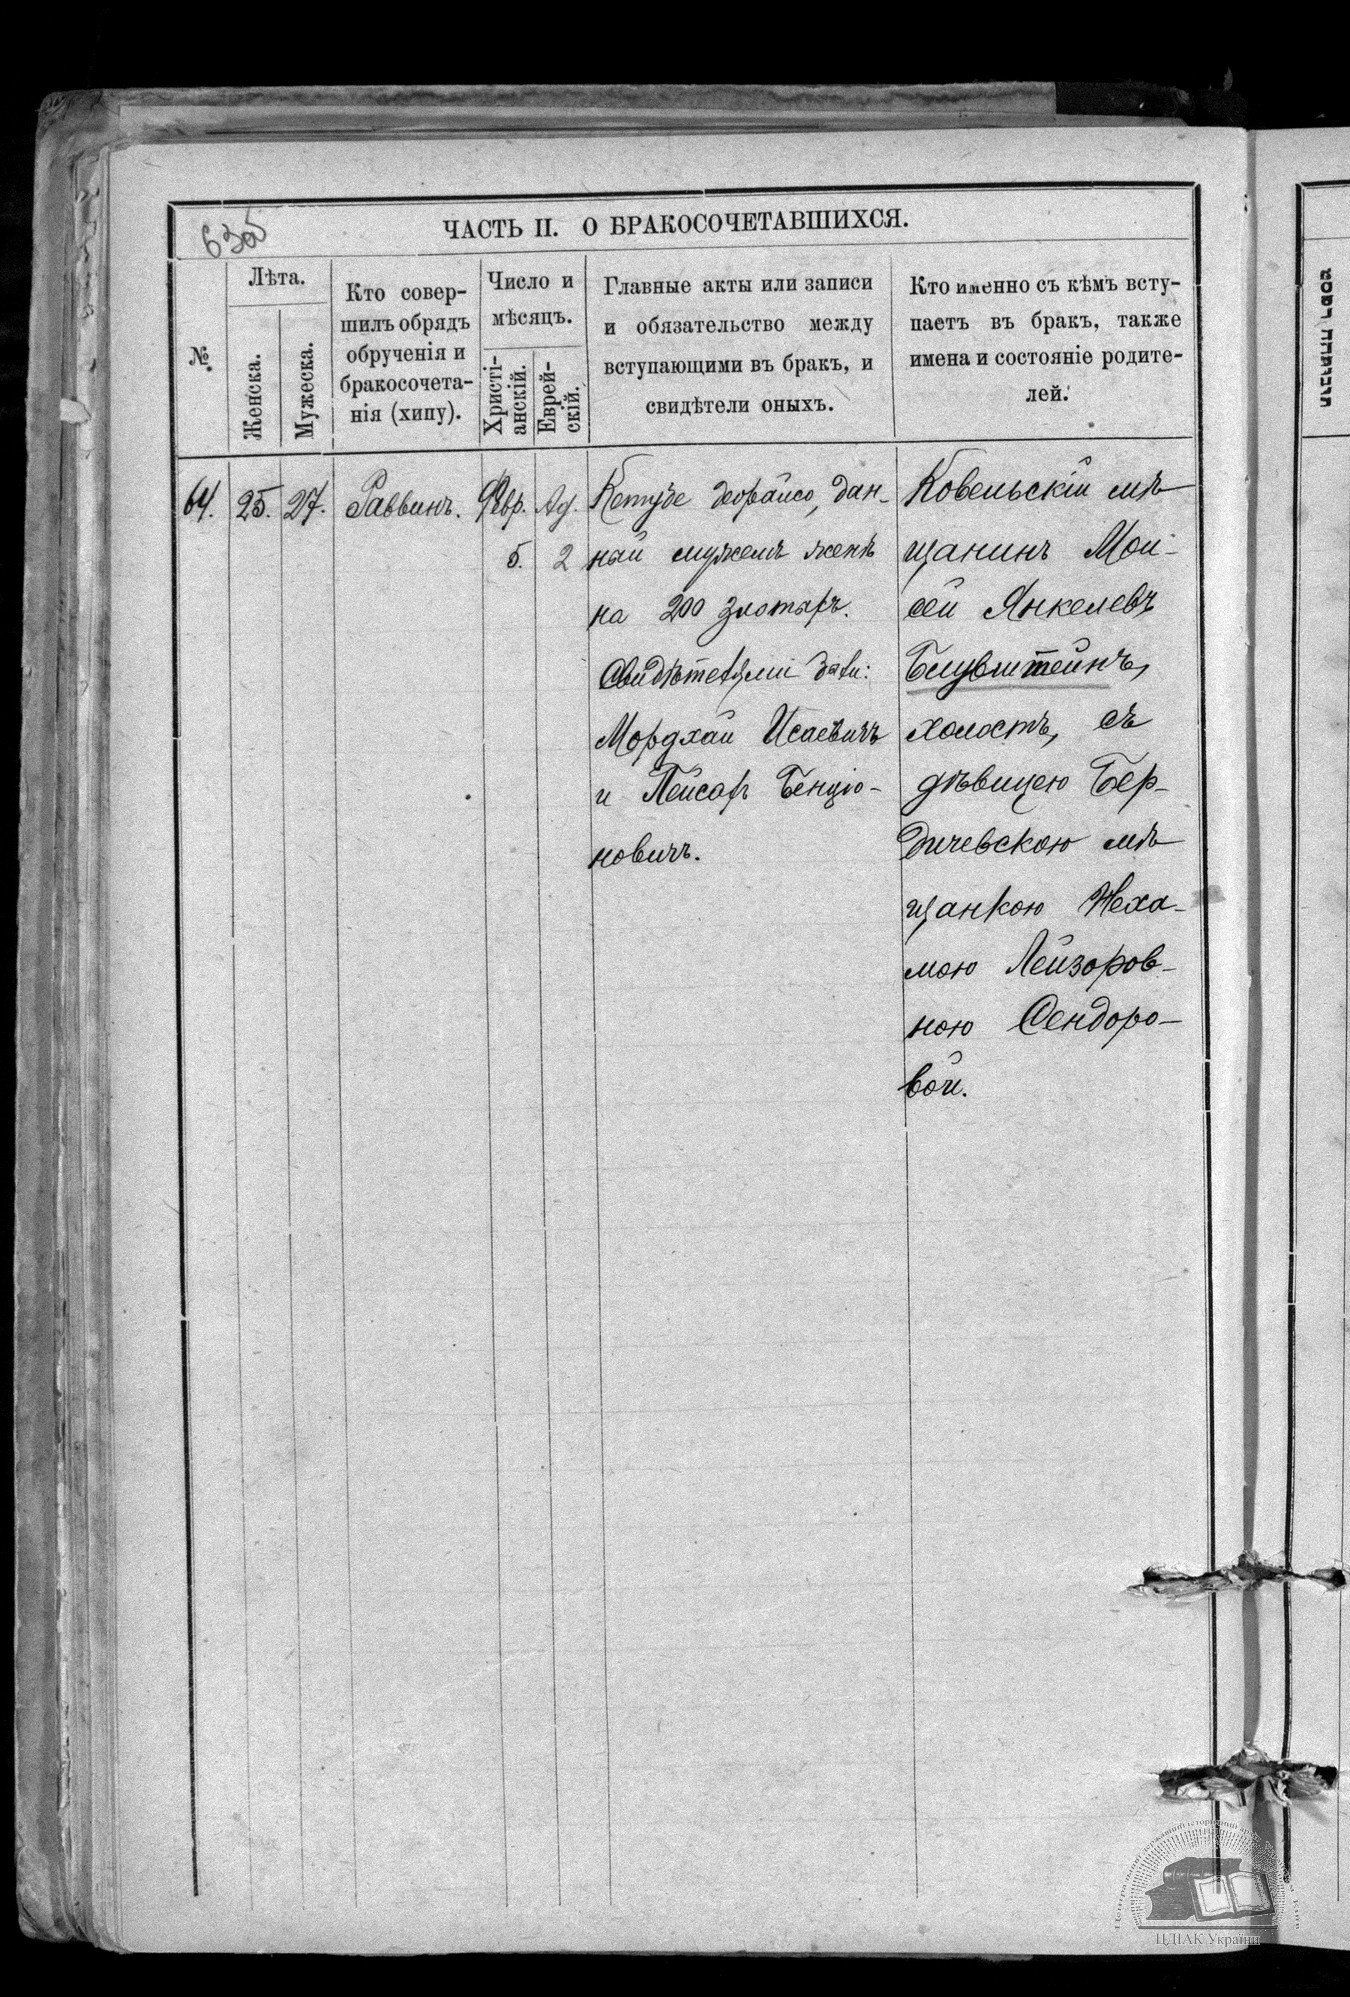 635
ЧАСТЬ II. О БРАКОСОЧЕТАВШИХСЯ.
№.
Лѣта.
Женска.
Мужеска.
Кто совер-
шилъ обрядъ
обрученія и
бракосочета-
нія (хипу).
Число и
мѣсяцъ.
Христі-
анскій.
Еврей-
скій.
Главные акты или записи
и обязательство между
вступающими въ бракъ, и
свидѣтели оныхъ.
Кто именно съ кѣмъ всту-
паетъ въ бракъ, также
имена и состояніе родите-
лей.
64.
25.
27.
Раввинъ.
Февр.
5.
Ад.
2
Кетубе деорайсо, дан-
ная мужемъ женѣ
на 200 злотыхъ.
Свидѣтелями были:
Мордхай Исаевичъ
и Пейсахъ Бенціо-
новичъ.
Ковельскій мѣ-
щанинъ Мои-
сей Янкелевъ
Блувштейнъ,
холостъ, съ
дѣвицею Бер-
дичевскою мѣ-
щанкою Неха-
мою Лейзоров-
ною Сендоро-
вой.
ЦДІАК України